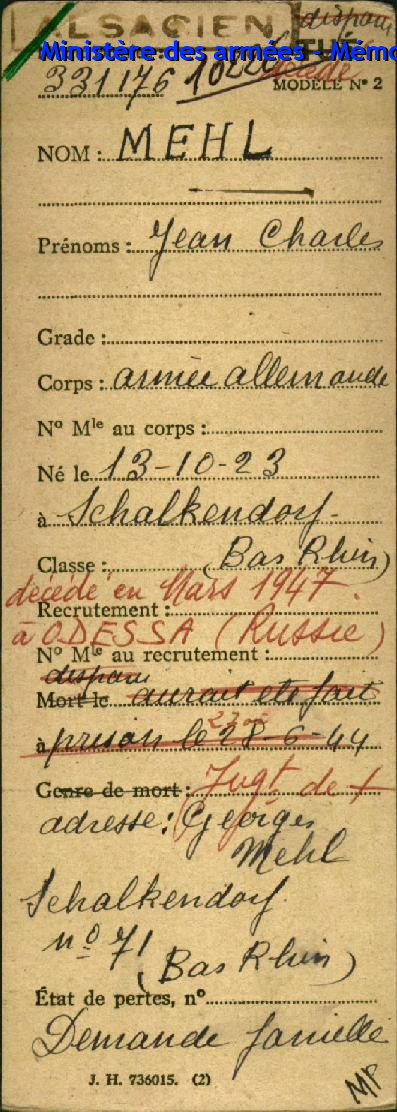 ALSACIEN disparu
TUÉ
Ministère des armées - Mémo
331176 décédé
MODÈLE Nº 2
NOM : MEHL
Prénoms : Jean Charles
Grade :
Corps : armée allemande
Nº Mle au corps :
Né le 13-10-23
à Schalkendorf
Classe : (Bas Rhin)
décédé en Mars 1947.
Recrutement :
à ODESSA (Russie)
Nº Mle au recrutement :
disparu
Mort le aurait été fait
à prison le 28-6-44
Genre de mort : Jugt de +
adresse : Georges
Mehl
Schalkendorf
nº 71
(Bas Rhin)
État de pertes, nº
Demande famille
J. H. 736015. (2)
MP